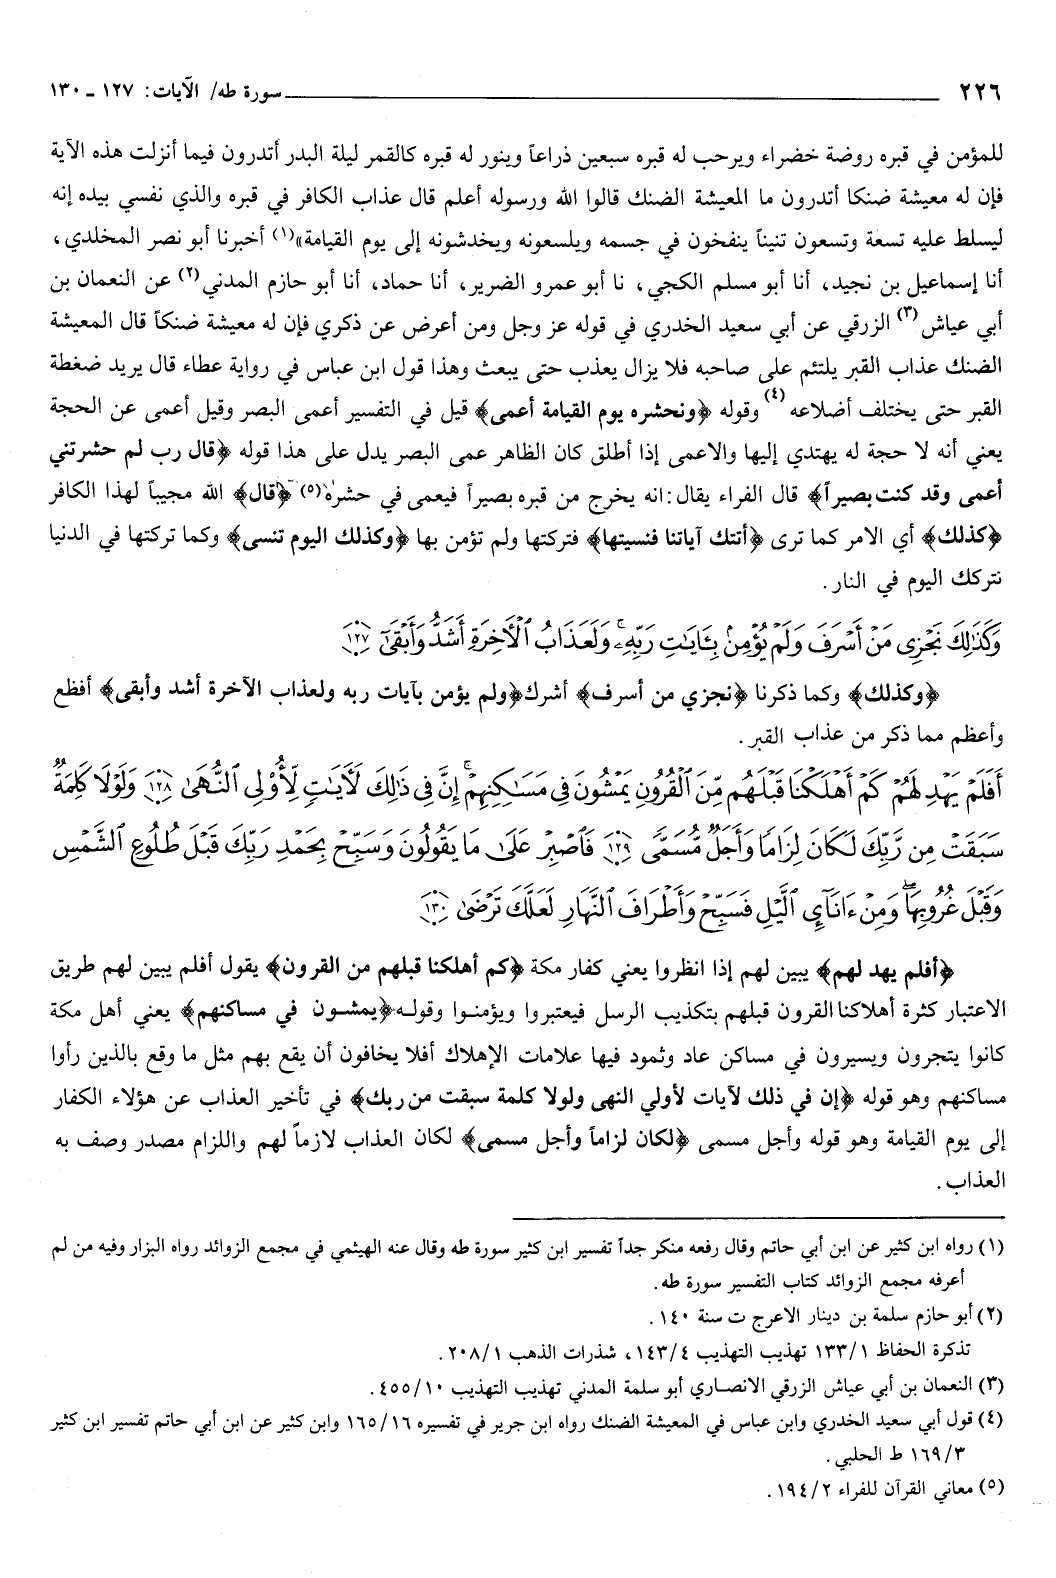 ٢٢٦ سورة طه/ الآيات: ١٢٧ - ١٣٠
للمؤمن في قبره روضة خضراء ويرحب له قبره سبعين ذراعاً وينور له قبره كالقمر ليلة البدر أتدرون فيما أنزلت هذه الآية
فإن له معيشة ضنكا أتدرون ما المعيشة الضنك قالوا الله ورسوله أعلم قال عذاب الكافر في قبره والذي نفسي بيده إنه
ليسلط عليه تسعة وتسعون تنيناً ينفخون في جسمه ويلسعونه ويخدشونه إلى يوم القيامة»(١) أخبرنا أبو نصر المخلدي،
أنا إسماعيل بن نجيد، أنا أبو مسلم الكجي، نا أبو عمرو الضرير، أنا حماد، أنا أبو حازم المدني(٢) عن النعمان بن
أبي عياش(٣) الزرقي عن أبي سعيد الخدري في قوله عز وجل ومن أعرض عن ذكري فإن له معيشة ضنكاً قال المعيشة
الضنك عذاب القبر يلتئم على صاحبه فلا يزال يعذب حتى يبعث وهذا قول ابن عباس في رواية عطاء قال يريد ضغطة
القبر حتى يختلف أضلاعه(٤) وقوله ﴿ونحشره يوم القيامة أعمى﴾ قيل في التفسير أعمى البصر وقيل أعمى عن الحجة
يعني أنه لا حجة له يهتدي إليها والاعمى إذا أطلق كان الظاهر عمى البصر يدل على هذا قوله ﴿قال رب لم حشرتني
أعمى وقد كنت بصيراً﴾ قال الفراء يقال: انه يخرج من قبره بصيراً فيعمى في حشره(٥) ﴿قال﴾ الله مجيباً لهذا الكافر
﴿كذلك﴾ أي الامر كما ترى ﴿أتتك آياتنا فنسيتها﴾ فتركتها ولم تؤمن بها ﴿وكذلك اليوم تنسى﴾ وكما تركتها في الدنيا
نتركك اليوم في النار.
وَكَذَٰلِكَ نَجْزِى مَنْ أَسْرَفَ وَلَمْ يُؤْمِنۢ بِـَٔايَـٰتِ رَبِّهِۦۚ وَلَعَذَابُ ٱلْـَٔاخِرَةِ أَشَدُّ وَأَبْقَىٰٓ ١٢٧
﴿وكذلك﴾ وكما ذكرنا ﴿نجزي من أسرف﴾ أشرك﴿ولم يؤمن بآيات ربه ولعذاب الآخرة أشد وأبقى﴾ أفظع
وأعظم مما ذكر من عذاب القبر.
أَفَلَمْ يَهْدِ لَهُمْ كَمْ أَهْلَكْنَا قَبْلَهُم مِّنَ ٱلْقُرُونِ يَمْشُونَ فِى مَسَـٰكِنِهِمْۗ إِنَّ فِى ذَٰلِكَ لَـَٔايَـٰتٍ لِّأُو۟لِى ٱلنُّهَىٰ ١٢٨ وَلَوْلَا كَلِمَةٌ
سَبَقَتْ مِن رَّبِّكَ لَكَانَ لِزَامًا وَأَجَلٌ مُّسَمًّى ١٢٩ فَٱصْبِرْ عَلَىٰ مَا يَقُولُونَ وَسَبِّحْ بِحَمْدِ رَبِّكَ قَبْلَ طُلُوعِ ٱلشَّمْسِ
وَقَبْلَ غُرُوبِهَاۖ وَمِنْ ءَانَآئِ ٱلَّيْلِ فَسَبِّحْ وَأَطْرَافَ ٱلنَّهَارِ لَعَلَّكَ تَرْضَىٰ ١٣٠
﴿أفلم يهد لهم﴾ يبين لهم إذا انظروا يعني كفار مكة ﴿كم أهلكنا قبلهم من القرون﴾ يقول أفلم يبين لهم طريق
الاعتبار كثرة أهلاكنا القرون قبلهم بتكذيب الرسل فيعتبروا ويؤمنوا وقوله ﴿يمشون في مساكنهم﴾ يعني أهل مكة
كانوا يتجرون ويسيرون في مساكن عاد وثمود فيها علامات الإهلاك أفلا يخافون أن يقع بهم مثل ما وقع بالذين رأوا
مساكنهم وهو قوله ﴿إن في ذلك لآيات لأولي النهى ولولا كلمة سبقت من ربك﴾ في تأخير العذاب عن هؤلاء الكفار
إلى يوم القيامة وهو قوله وأجل مسمى ﴿لكان لزاماً وأجل مسمى﴾ لكان العذاب لازماً لهم واللزام مصدر وصف به
العذاب.
(١) رواه ابن كثير عن ابن أبي حاتم وقال رفعه منكر جداً تفسير ابن كثير سورة طه وقال عنه الهيثمي في مجمع الزوائد رواه البزار وفيه من لم
أعرفه مجمع الزوائد كتاب التفسير سورة طه.
(٢) أبو حازم سلمة بن دينار الاعرج ت سنة ١٤٠.
تذكرة الحفاظ ١/١٣٣ تهذيب التهذيب ٤/١٤٣، شذرات الذهب ١/٢٠٨.
(٣) النعمان بن أبي عياش الزرقي الانصاري أبو سلمة المدني تهذيب التهذيب ١٠/٤٥٥.
(٤) قول أبي سعيد الخدري وابن عباس في المعيشة الضنك رواه ابن جرير في تفسيره ١٦/١٦٥ وابن كثير عن ابن أبي حاتم تفسير ابن كثير
٣/١٦٩ ط الحلبي.
(٥) معاني القرآن للفراء ٢/١٩٤.